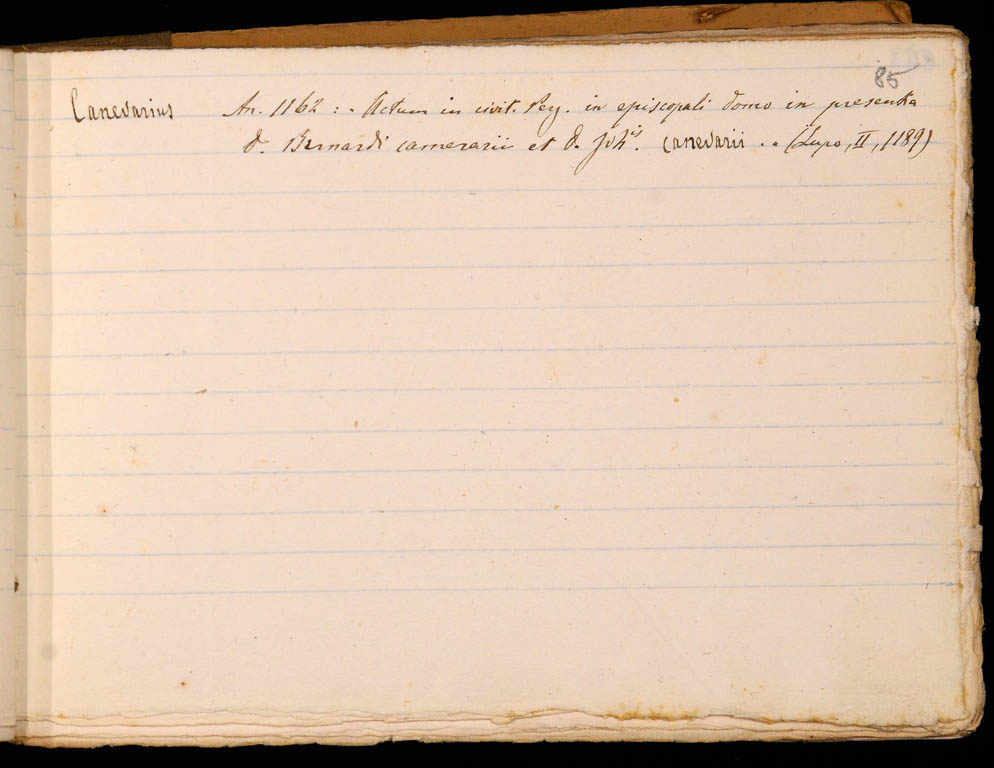 85
Canevarius An. 1162 : . Actum in civit. Perg. in episcopali domo in presentia
d. Bernardi camerarii et d. Joh.is canevarii . . (Lupo, II, 1189)